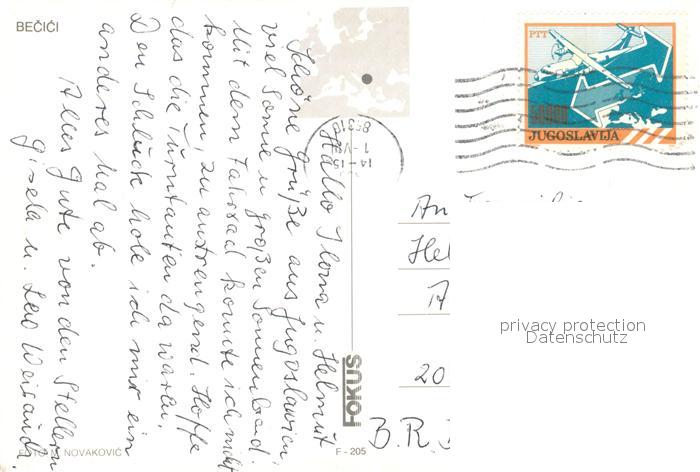 BEČIĆI
Hallo Ilona u. Helmut
Schöne Grüße aus Jugoslawien,
viel Sonne u. großen Sonnenbad.
Mit dem Fahrrad konnte ich nicht
kommen, zu anstrengend. Hoffe
das die Turntanten da waren.
Den Schluck hole ich mir ein
anderes Mal ab.
Alles Gute von den Stellern
Gisela u. Leo
FOTO M. NOVAKOVIĆ
F-205
FOKUS
85310
PTT
JUGOSLAVIJA
An
Hel
20
B.R.
privacy protection
Datenschutz